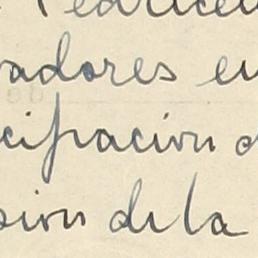 adores en
cipacion d
sion de la